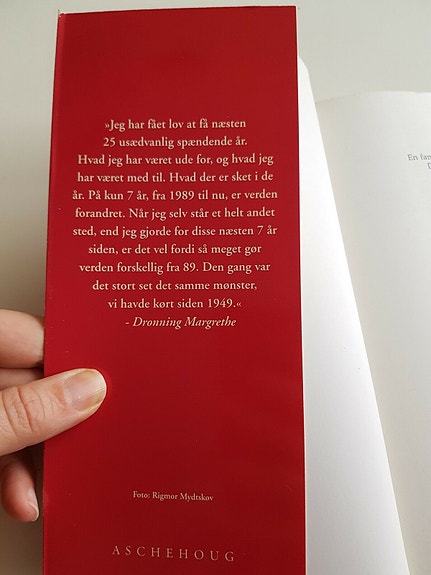 »Jeg har fået lov at få næsten
25 usædvanlig spændende år.
Hvad jeg har været ude for, og hvad jeg
har været med til. Hvad der er sket i de
år. På kun 7 år, fra 1989 til nu, er verden
forandret. Når jeg selv står et helt andet
sted, end jeg gjorde for disse næsten 7 år
siden, er det vel fordi så meget gør
verden forskellig fra 89. Den gang var
det stort set det samme mønster,
vi havde kørt siden 1949.«
- Dronning Margrethe
Foto: Rigmor Mydtskov
ASCHEHOUG
En